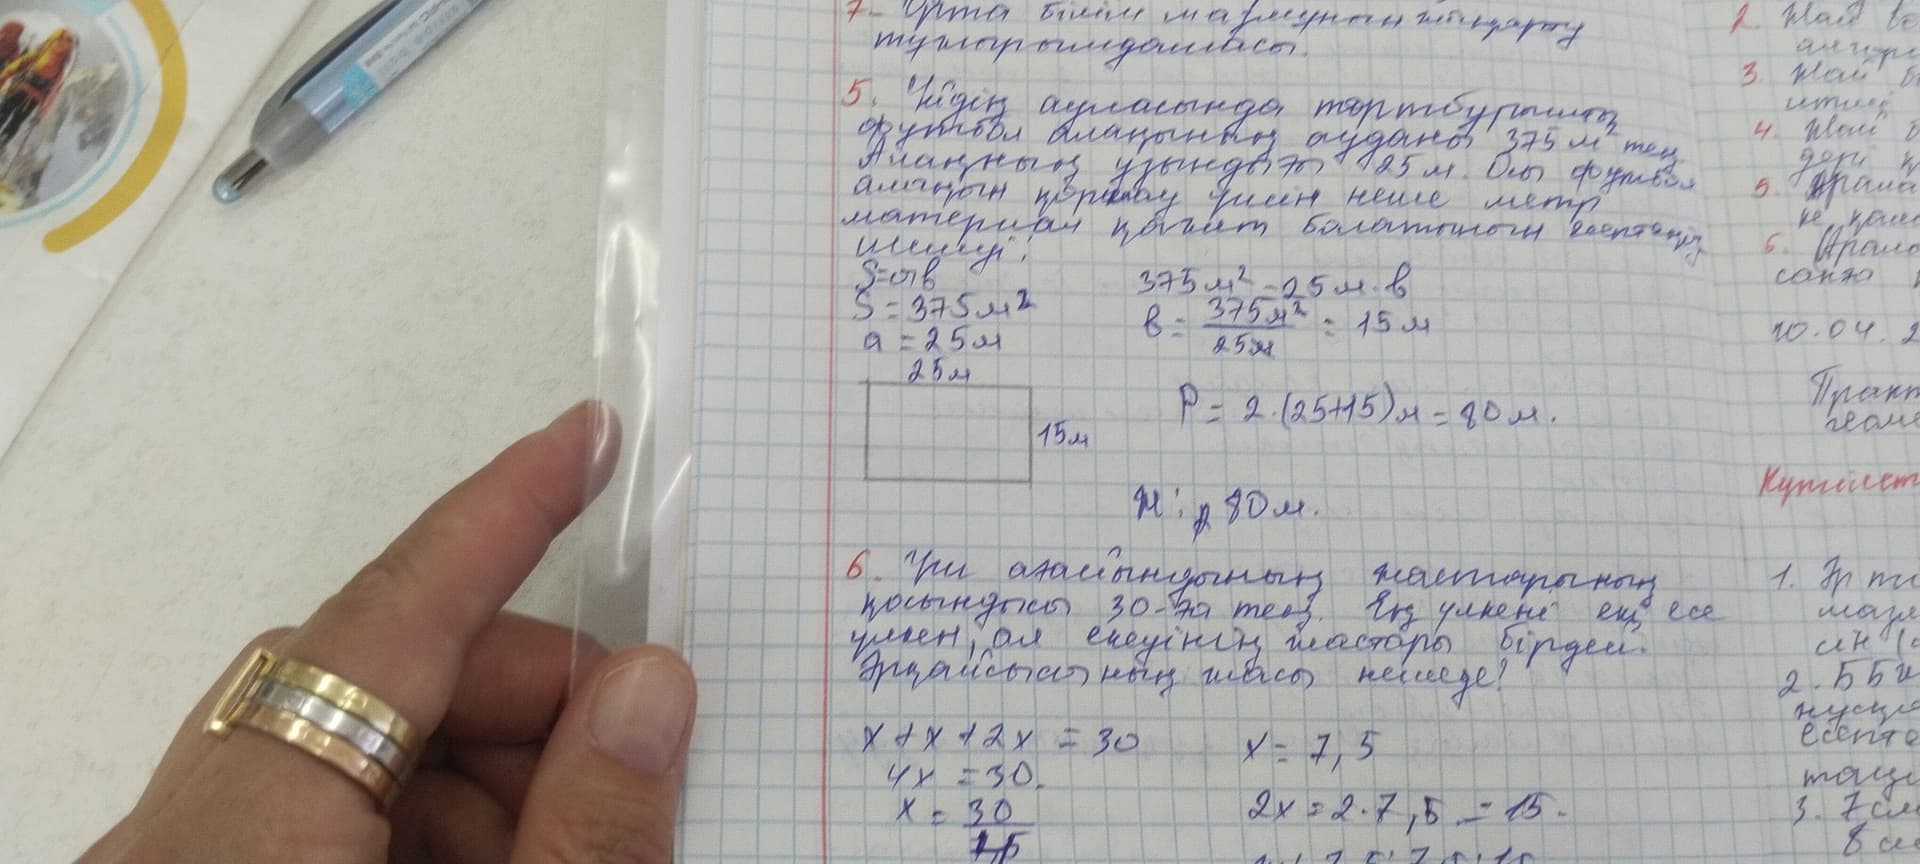 7. Орта білім мазмұнын жаңарту
тұжырымдамасы.
5. Үйдің ауласында төртбұрышты
футбол алаңының ауданы 375 м² тең.
Алаңның ұзындығы 25 м. Осы футбол
алаңын қоршау үшін неше метр
материал қажет болатынын есептеңіз
Шешуі:
S=a·в
S = 375 м²
a = 25 м
25 м
15 м
375 м² = 25 м · в
в = 375 м² / 25 м = 15 м
P = 2 · (25+15) м = 80 м.
Ж: 80 м.
6. Үш ағайындының жастарының
қосындысы 30-ға тең. Ең үлкені екі есе
үлкен, ал екеуінің жастары бірдей.
Әрқайсысының жасы нешеде?
x + x + 2x = 30
4x = 30.
x = 30
x = 7,5
2x = 2 · 7,5 = 15.
2. Жай
3. Жай
4. Жай
5. Арала
6. Арала
10.04.2
Практ
геоме
Күтілет
1. Әр
2. ББЖ
есепте
3. 7 см
8 см